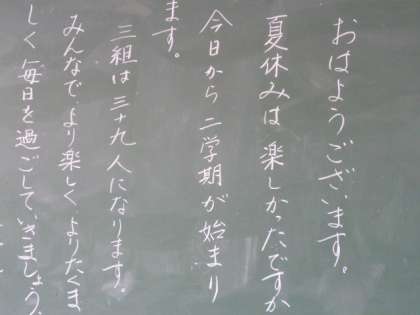 おはようございます。
夏休みは楽しかったですか
今日から二学期が始まり
ます。
三組は三十九人になります。
みんなで、より楽しくよりたくま
しく毎日を過ごしていきましょう。